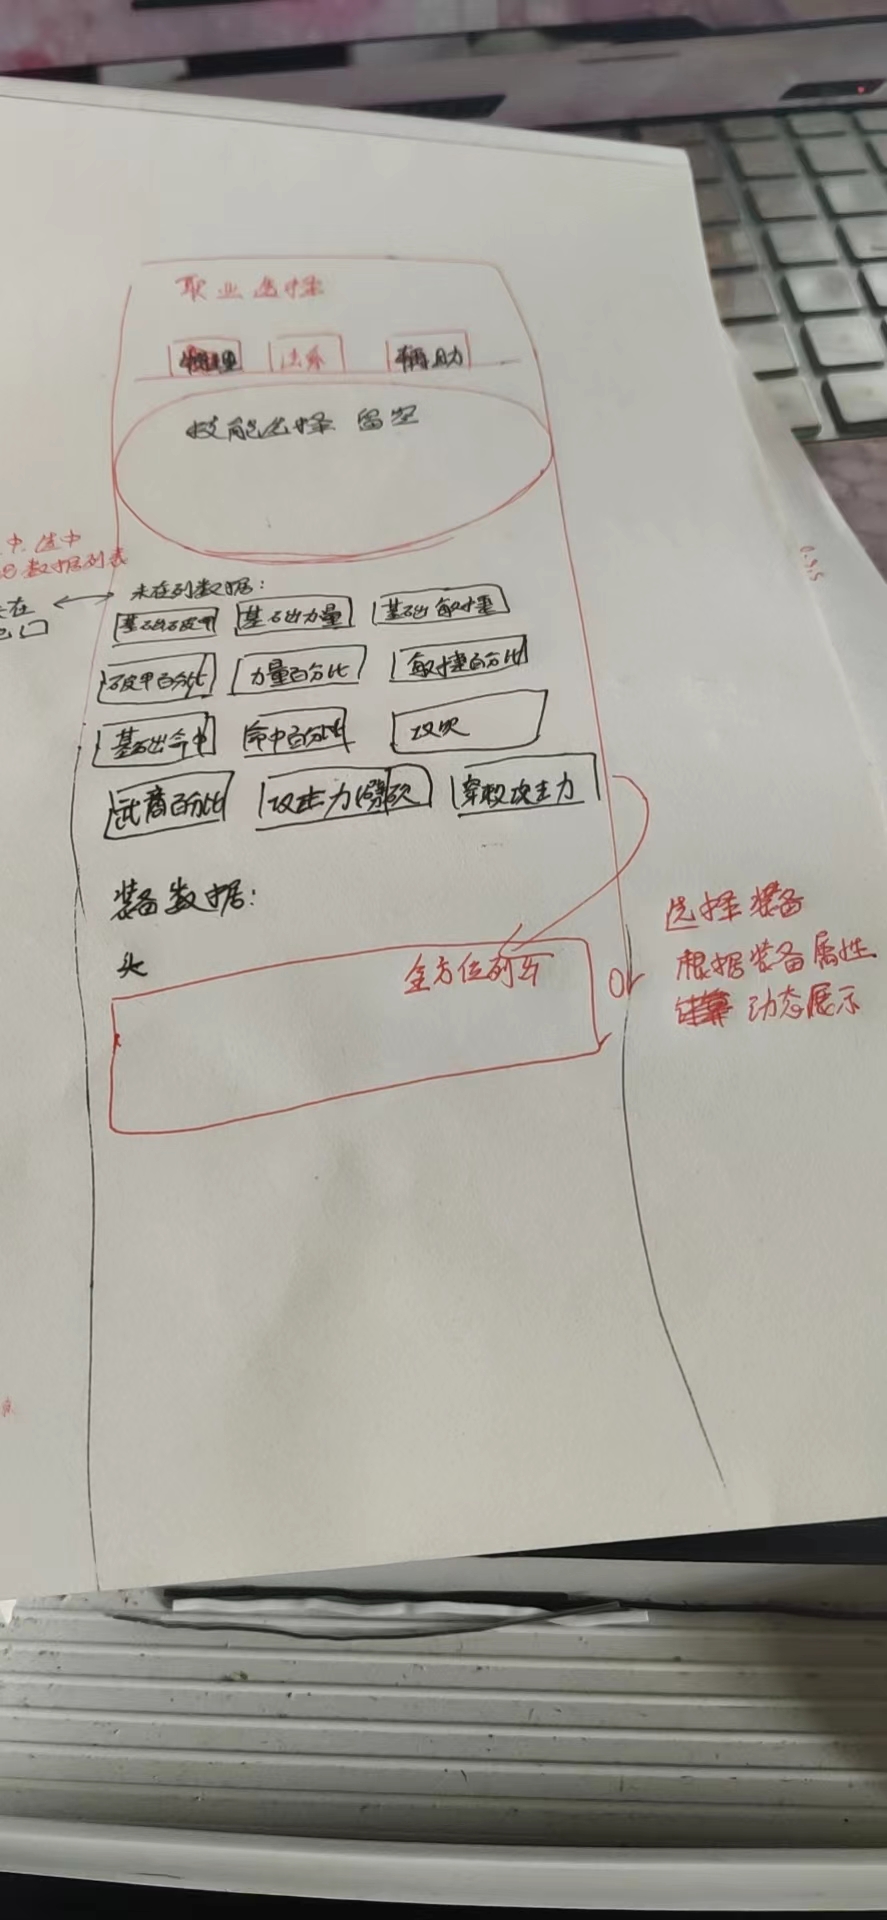 职业选择
物理 法系 辅助
技能选择 留空
中.选中
数据列表
未在列数据:
基础破甲 基础力量 基础敏捷
破甲百分比 力量百分比 敏捷百分比
基础命中 命中百分比 攻次
武器百分比 攻击力 穿刺攻击力
装备数据:
头
全方位列车
or
选择装备
根据装备属性
动态展示